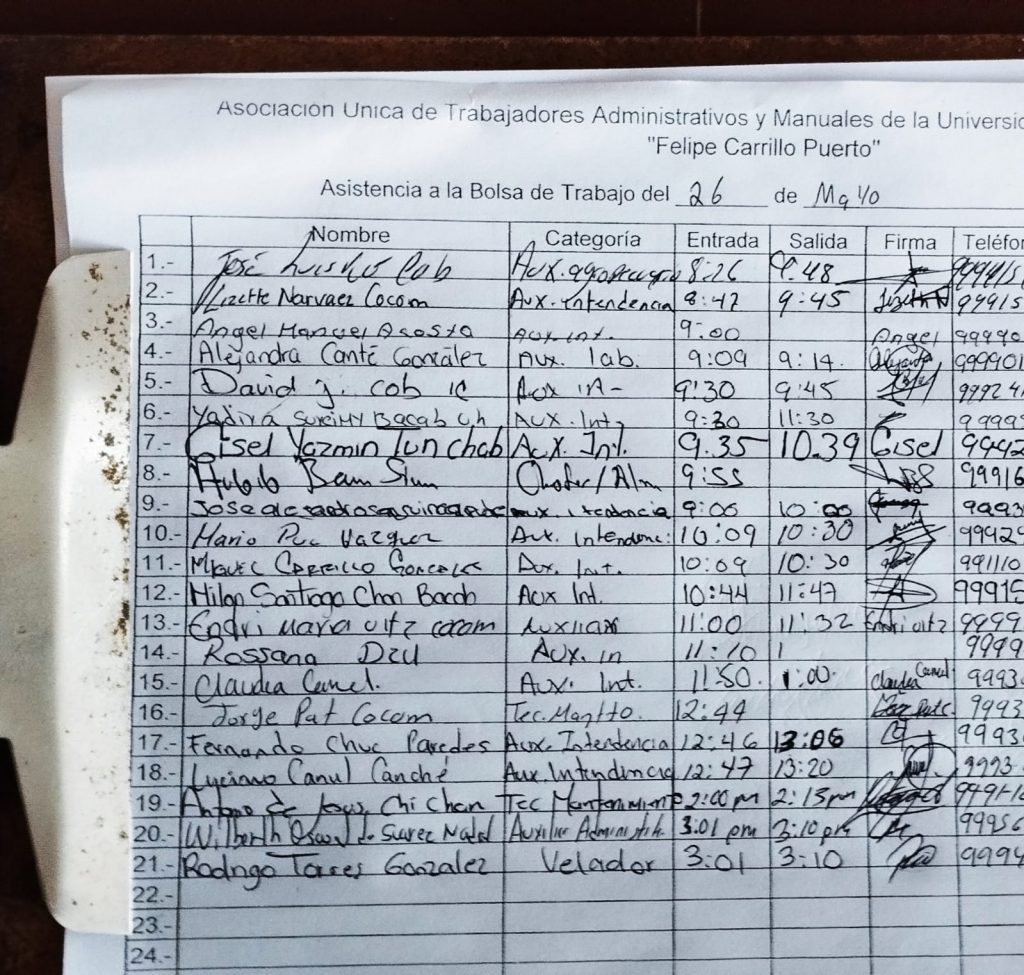 Asociación Unica de Trabajadores Administrativos y Manuales de la Universid
"Felipe Carrillo Puerto"
Asistencia a la Bolsa de Trabajo del 26 de Mayo
Nombre Categoría Entrada Salida Firma Teléfon
1.- José Cob Aux. 8:26 9:48 99991
2.- Lizette Narvaez Cocom Aux. Intendencia 8:47 9:45 99915
3.- Angel Manuel Acosta Aux. Int. 9:00 Angel 99990
4.- Alejandra Canté González Aux. lab. 9:09 9:14. 999901
5.- David J. Cob 9:30 9:45 99924
6.- Yadira Bacab Uh Aux. Int. 9:30 11:30 99999
7.- Gisel Yazmin Tun Chab Aux. Int. 9.35 10.39 Gisel 9992
8.- Chofer/Alm 9:55 99916
9.- Jose Aux. Intendencia 9:00 10:00 9993
10.- Mario Puc Vazquez Aux. Intendenc: 10:09 10:30 99929
11.- Miguel Carrillo Gonzales Aux. Int. 10:09 10:30 991110
12.- Santiago Chan Bacab Aux Int. 10:44 11:47 99915
13.- Endri Maria Uitz Cocom Auxiliar 11:00 11:32 Endri Uitz 9999
14.- Rossana Dzul Aux. in 11:10 1 9999
15.- Claudia Canul. Aux. Int. 11:50. 1:00. Claudia Canul. 9993
16.- Jorge Pat Cocom Tec. Mantto. 12:44 9993
17.- Fernando Chuc Paredes Aux. Intendencia 12:46 13:06 9993
18.- Luciano Canul Canché Aux. Intendencia 12:47 13:20 9993
19.- Antonio de Jesus Chi Chan Tec Mantenimiento 2:00 pm 2:15pm
20.- Wilberth Suarez Auxiliar 3:01 pm 3:10 pm 99956
21.- Rodrigo Torres Gonzalez Velador 3:01 3:10 9994
22.-
23.-
24.-